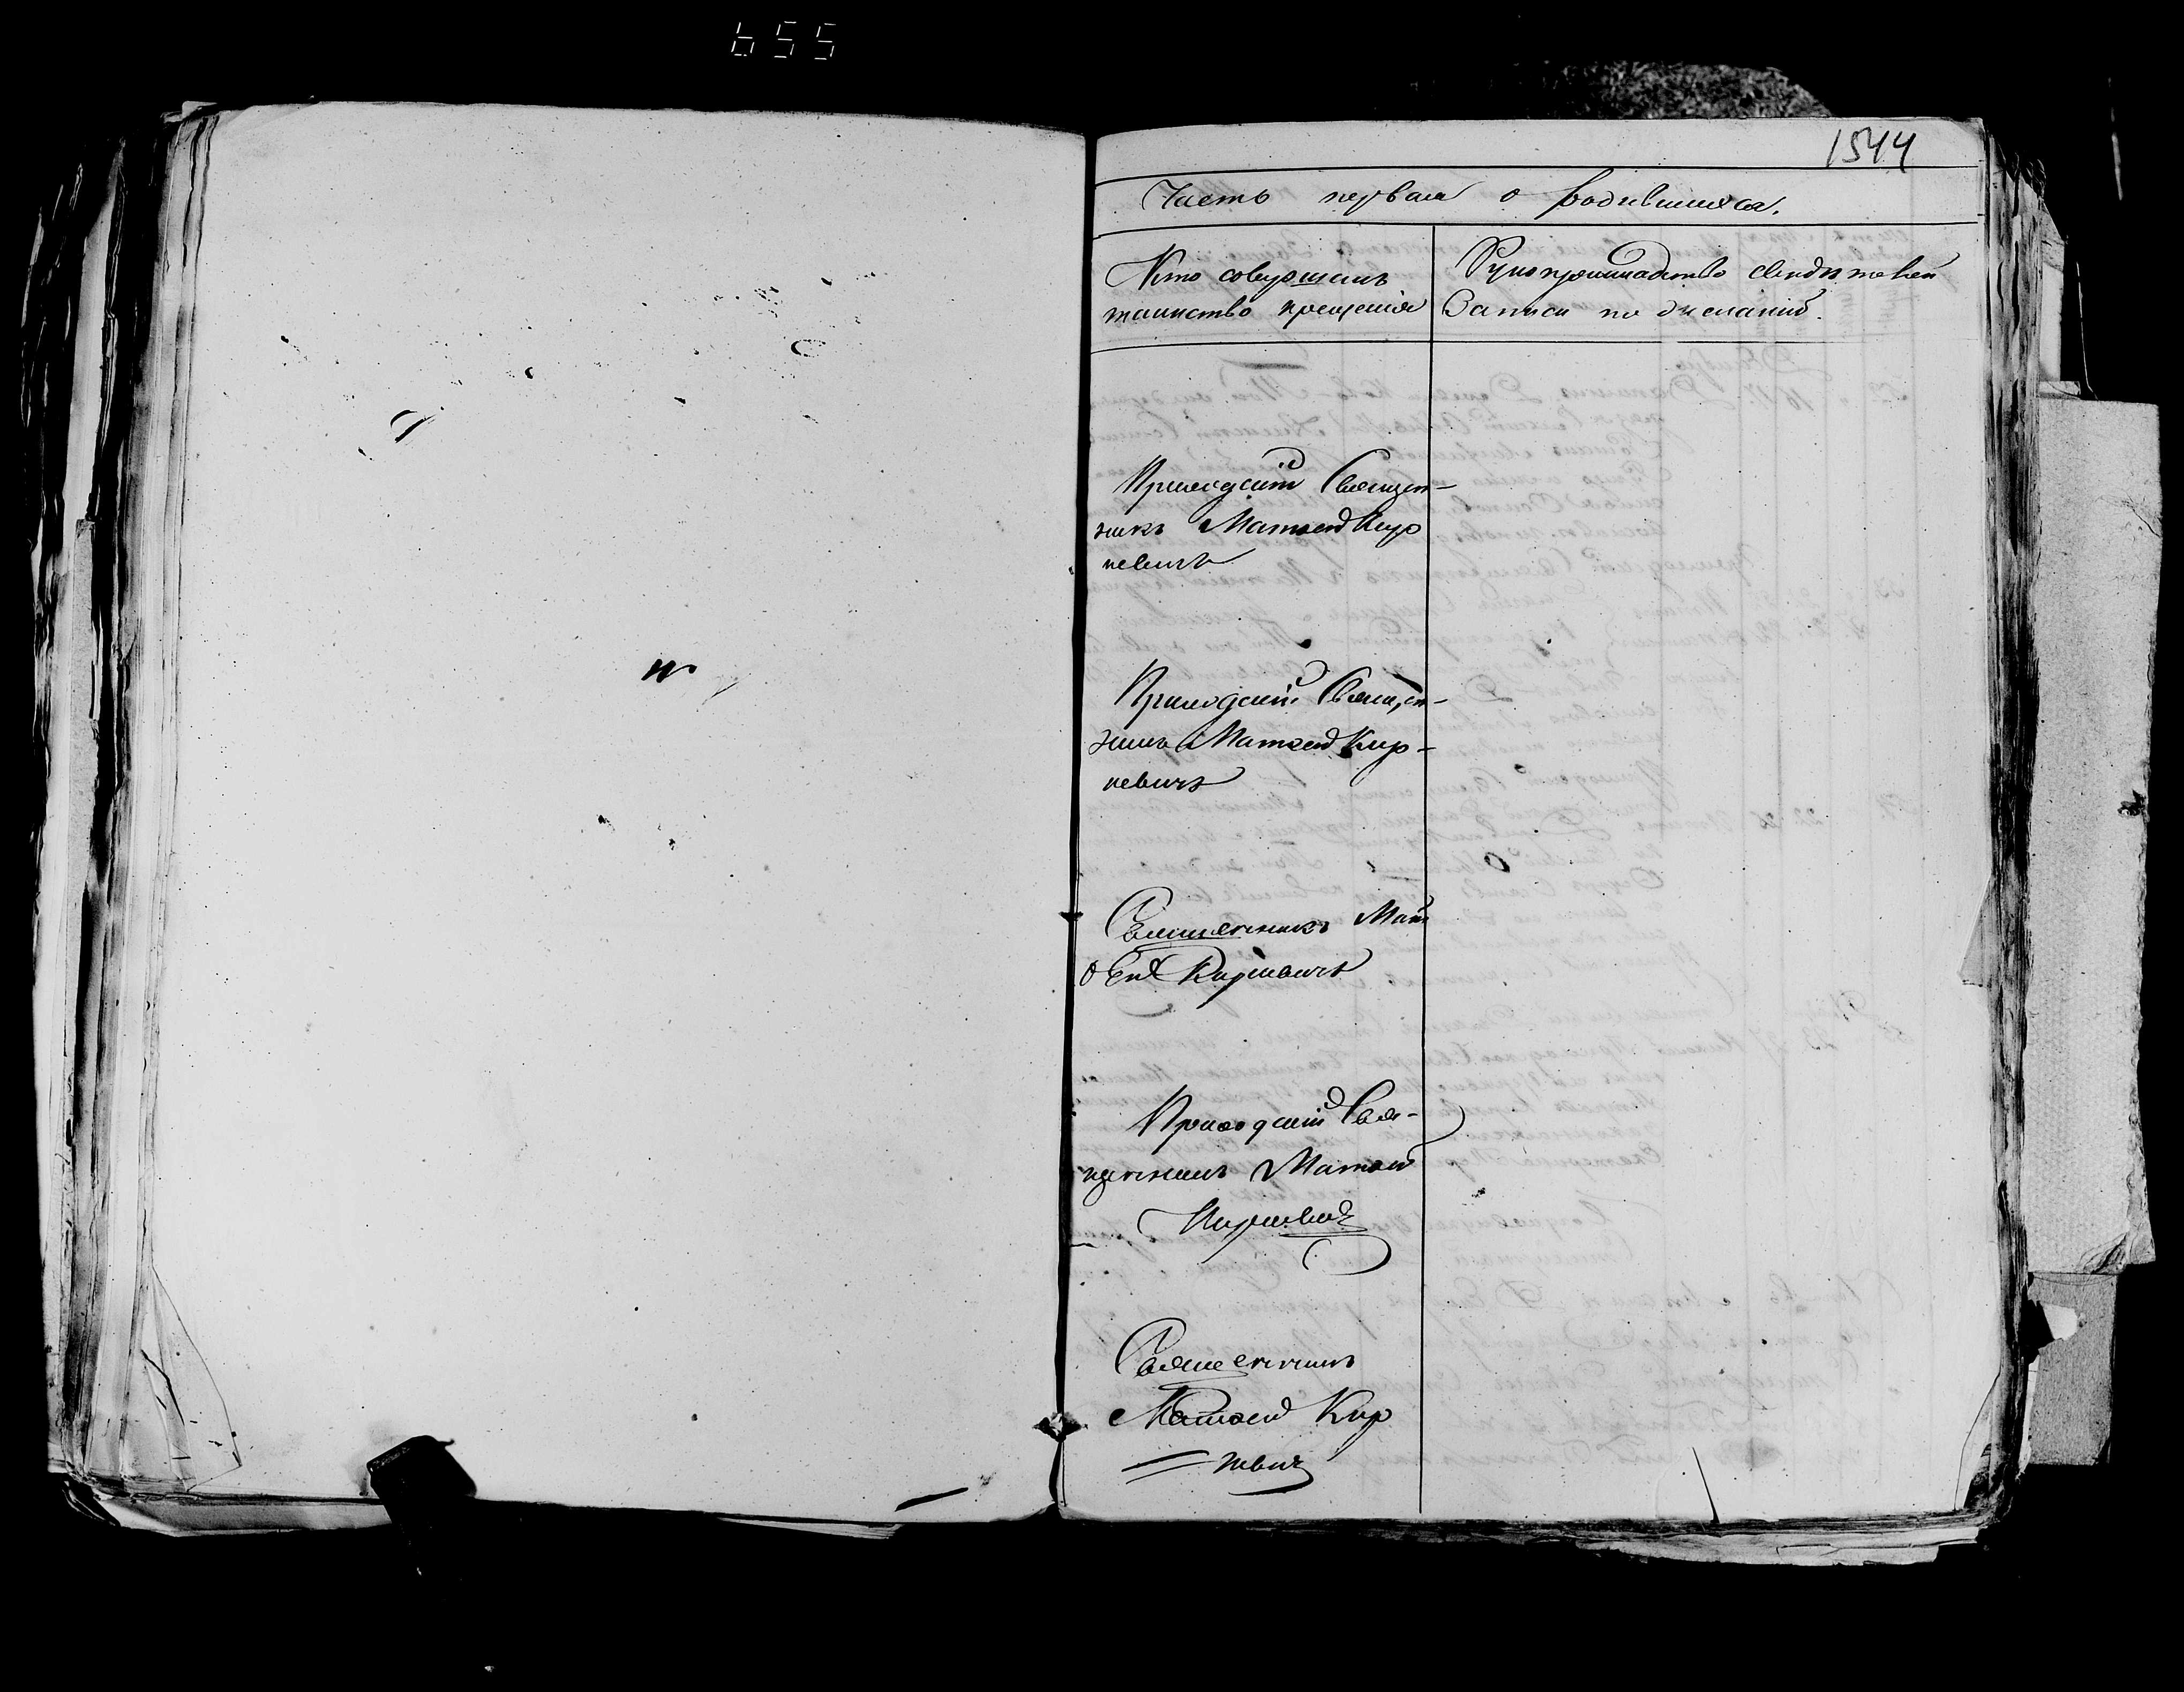 655
1544
Часть первая о родившихся.
Кто совершалъ
таинство крещенія
Рукоприкладство свидѣтелей
записи по желанію.
Приходскій Священ-
никъ Матоей Кир
кевичъ
Приходскій Священ-
никъ Матоей Кир-
кевичъ
Священникъ Мат
оей Киркевичъ
Приходскій Свя-
щенникъ Матоей
Киркевичъ
Священникъ
Матоей Кир
=кевичъ